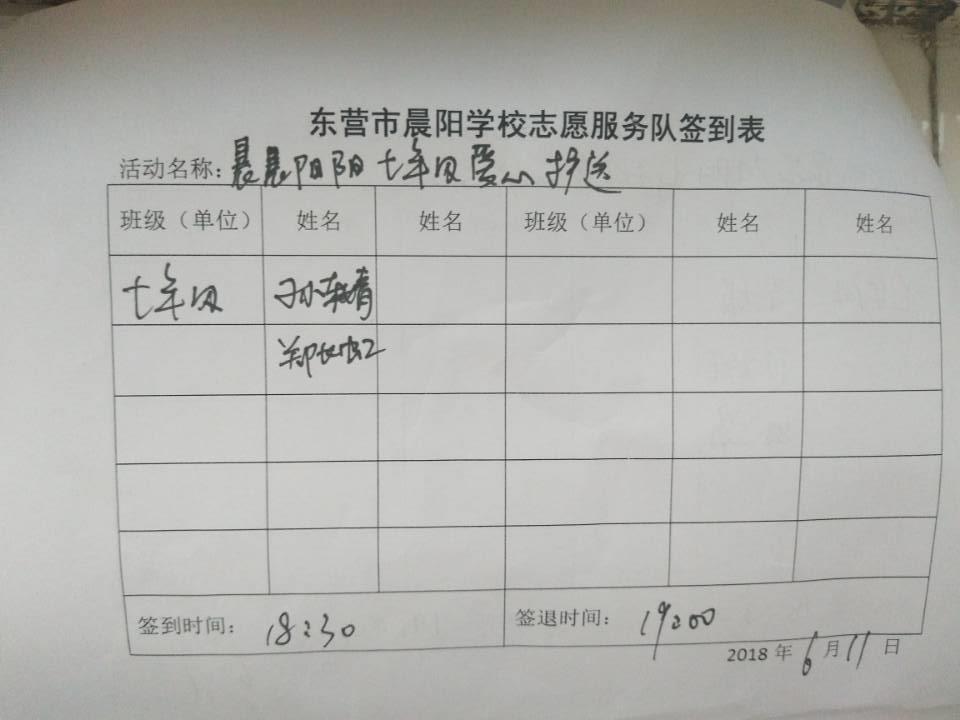 东营市晨阳学校志愿服务队签到表
活动名称：晨晨阳阳七年级爱心护送
班级（单位） 姓名 姓名 班级（单位） 姓名 姓名
七年级 孙
郑
签到时间： 18:30 签退时间： 19:00
2018 年 6 月 11 日